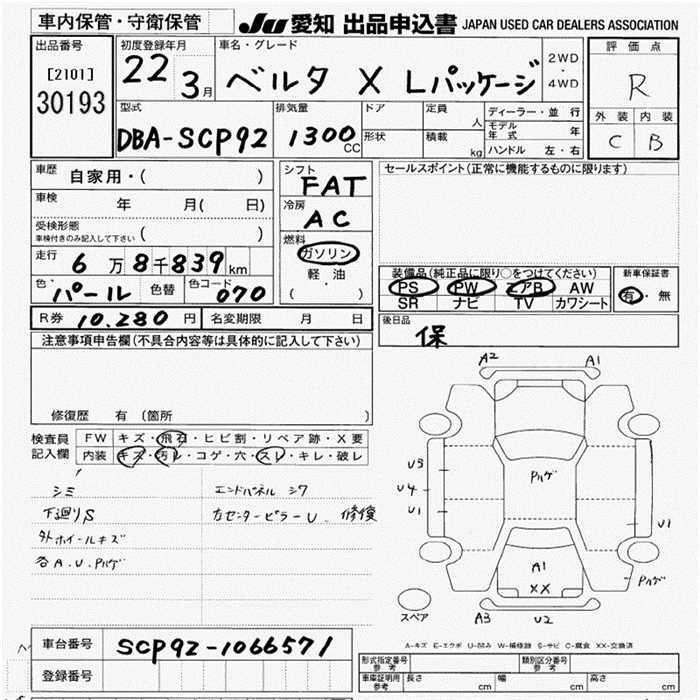 車内保管・守衛保管 JU 愛知 出品申込書 JAPAN USED CAR DEALERS ASSOCIATION
出品番号
[2101]
30193
初度登録年月
22 3月
車名・グレード
ベルタ X Lパッケージ
2WD
・
4WD
評価点
R
外装 内装
C B
型式
DBA-SCP92
排気量
1300cc
ドア
形状
定員 人
積載 kg
ディーラー・並行
モデル年式 年
ハンドル 左・右
車歴 自家用・( )
車検 年 月( 日)
受検形態
車検付きのみ記入して下さい ( )
走行 6万8千839km
色 パール 色替 色コード 070
シフト
FAT
冷房
AC
燃料
ガソリン
軽油
( )
セールスポイント(正常に機能するものに限ります)
装備品(純正品に限り○をつけてください)
PS PW エアB AW
SR ナビ TV カワシート
新車保証書
有・無
R券 10.280円 名変期限 月 日
後日品
保
注意事項申告欄(不具合内容等は具体的に記入して下さい)
修復歴 有 (箇所 )
検査員記入欄
FW キズ・飛石・ヒビ割・リペア跡・X要
内装 キズ・汚レ・コゲ・穴・スレ・キレ・破レ
シミ
下廻りS
外ホイールキズ
各A.U.Pハゲ
エンドパネル シワ
右センターピラーU 修復
A2 A1
U3
U4
U1
Pハゲ
U1
A1
XX
Pハゲ
スペア
A3 U2
A-キズ E-エクボ U-凹み W-補修跡 S-サビ C-腐食 XX-交換済
車台番号 SCP92-1066571
登録番号
形式指定番号 参考
類別区分番号 参考
車庫証明用 参考
長さ cm
幅 cm
高さ cm